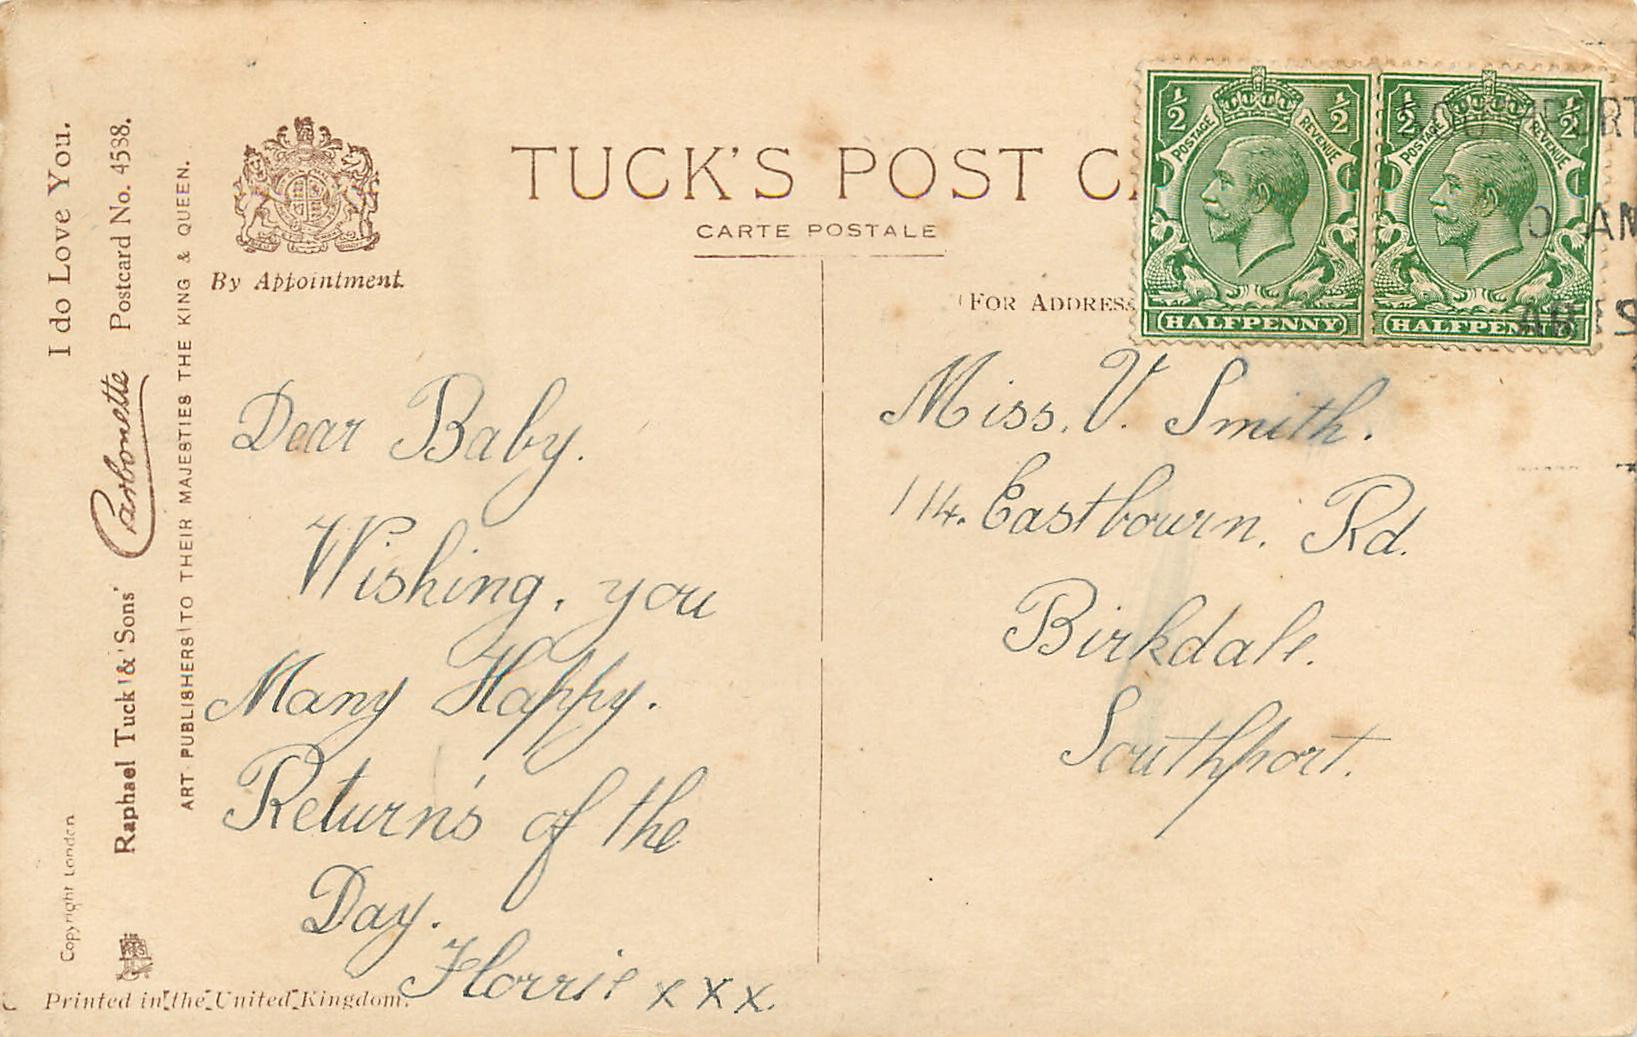 I do Love You.
Postcard No. 4538.
Carbonette
Raphael Tuck & Sons'
ART PUBLISHERS TO THEIR MAJESTIES THE KING & QUEEN.
Copyright London
By Appointment
Printed in the United Kingdom.
TUCK'S POST
CARTE POSTALE
(FOR ADDRESS
1/2 1/2
POSTAGE REVENUE
HALFPENNY
1/2 1/2
POSTAGE REVENUE
HALFPENNY
AM
Dear Baby.
Wishing. you
Many Happy.
Return's of the
Day.
Florrie x x x.
Miss. V. Smith.
114. Eastbourn. Rd.
Birkdale.
Southport.